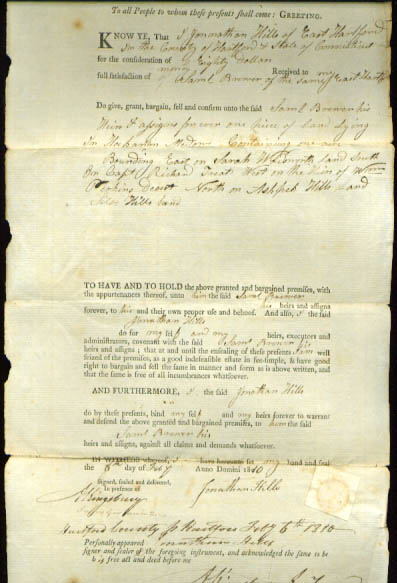 To all People to whom these presents shall come: GREETING.
KNOW YE, That I Jonnathan Hills of East Hartford
In the County of Hartford & State of Connecticut
for the consideration of Eighty Dollars
money
full satisfaction of Saml Brewer of the same East Hartford Received to my
Do give, grant, bargain, sell and confirm unto the said Saml Brewer his
Heirs & assigns forever one piece of Land Lying
In Meadow Containing one acre
Bounding East on Sarah land South
On Capt Richard Treat West on the Heirs of Wm
Decest North on Hills and
Silas Hills land
TO HAVE AND TO HOLD the above granted and bargained premises, with
the appurtenances thereof, unto him the said Saml Brewer
his heirs and assigns
forever, to his and their own proper use and behoof. And also, I the said
Jonathan Hills
do for my self and my heirs, executors and
administrators, covenant with the said Saml Brewer his
heirs and assigns; that at and until the ensealing of these presents I am well
seized of the premises, as a good indefeasible estate in fee-simple; & have good
right to bargain and sell the same in manner and form as is above written, and
that the same is free of all incumbrances whatsoever.
AND FURTHERMORE, I, the said Jonathan Hills
do by these presents, bind my self and my heirs forever to warrant
and defend the above granted and bargained premises, to him the said
Saml Brewer his
heirs and assigns, against all claims and demands whatsoever.
IN WITNESS whereof, I have hereunto set my hand and seal
the 6th day of Feby Anno Domini 1810
Signed, sealed and delivered,
In presence of
Kingsbury Jonathan Hills
Hartford County ss Hartford Feby 6th 1810
Personally appeared Jonnathan Hills
signer and sealer of the foregoing instrument, and acknowledged the same to be
his free act and deed before me